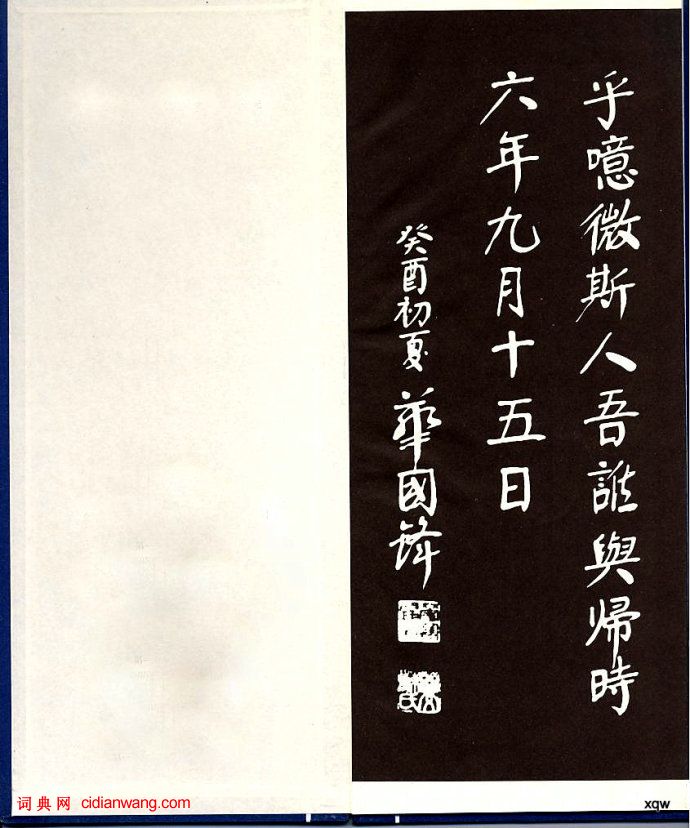 乎噫微斯人吾誰與歸時
六年九月十五日
癸酉初夏 華國鋒
词典网 cidianwang.com
xqw